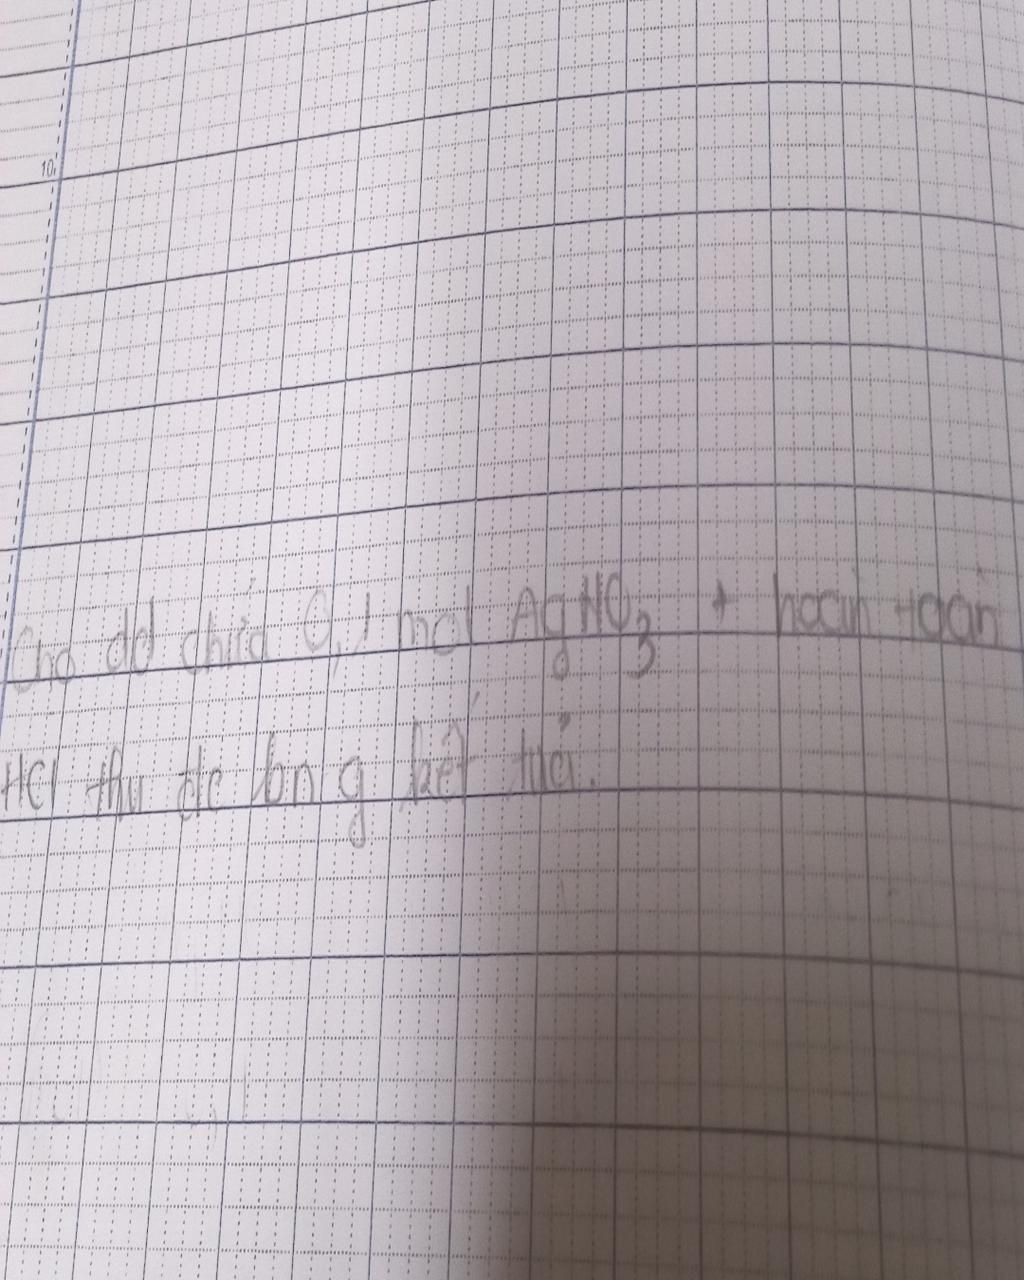 10
Cho dd chứa 0,1 mol AgNO3 + hoàn toàn
HCl thu dc bn g kết tủa.